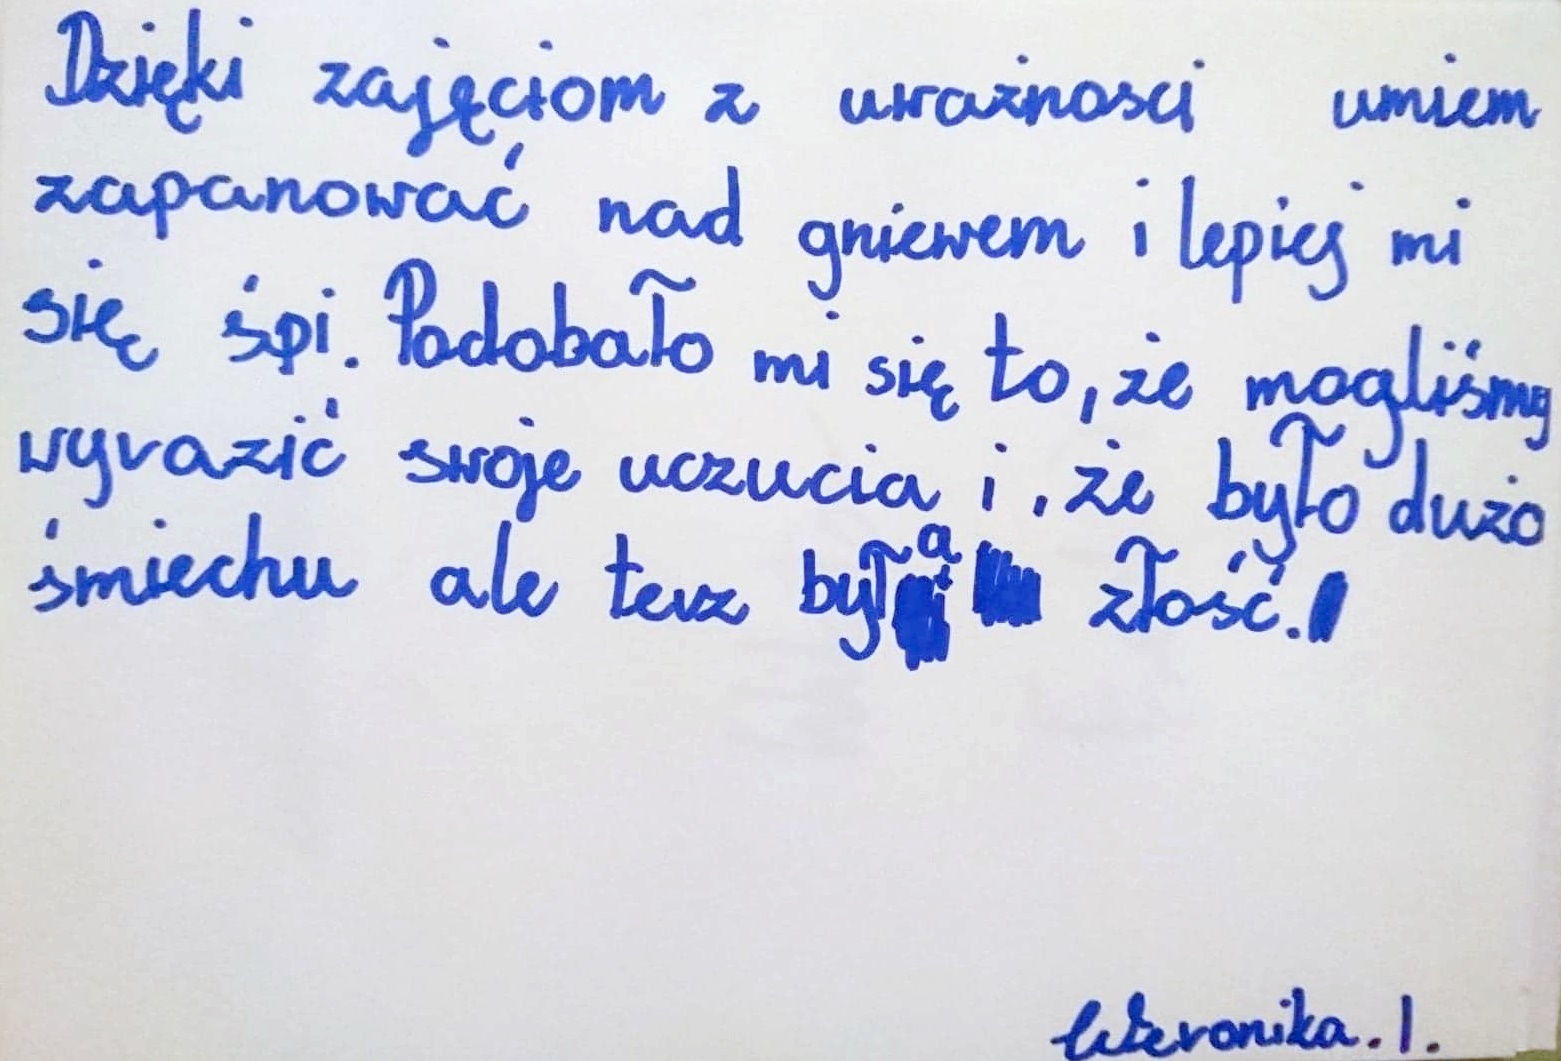 Dzięki zajęciom z uważnosci umiem
zapanować nad gniewem i lepiej mi
się śpi. Podobało mi się to, że mogliśmy
wyrazić swoje uczucia i, że było dużo
śmiechu ale terz była złość.
Weronika. I.